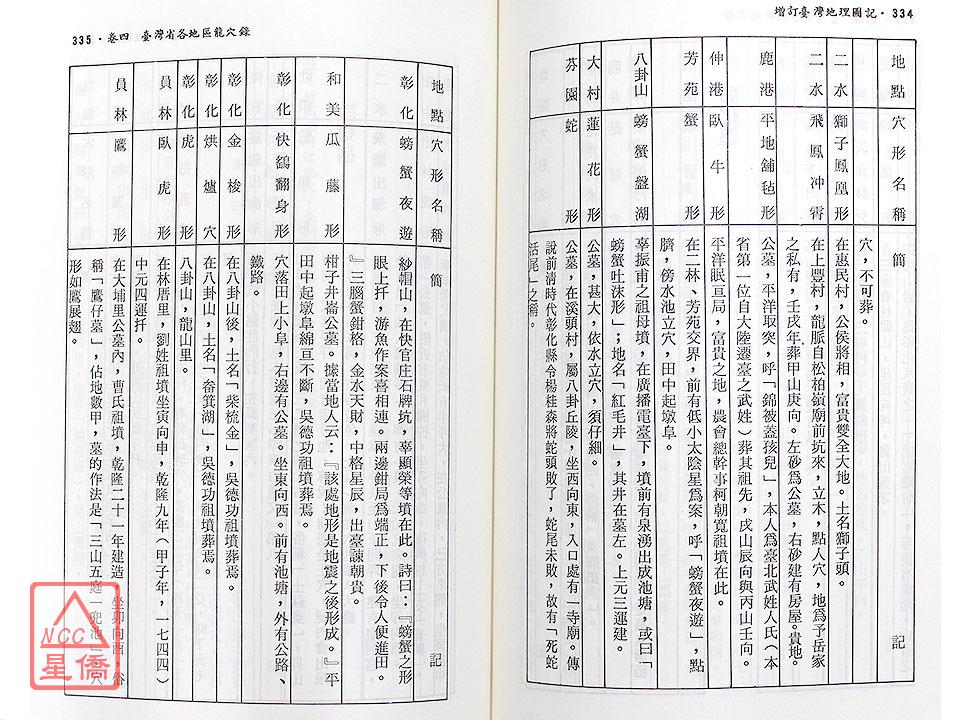 增訂臺灣地理圖記・334
地點 穴形名稱 簡記
穴,不可葬。
二水 獅子鳳凰形 在惠民村,公侯將相,富貴雙全大地。土名獅子頭。
二水 飛鳳冲霄 在上豐村,龍脈自松柏嶺廟前坑來,立木,點人穴,地爲予岳家
之私有,壬戌年葬甲山庚向。左砂爲公墓,右砂建有房屋。貴地。
鹿港 平地舖毡形 公墓,平洋取突,呼「錦被蓋孩兒」,本人爲臺北武姓人氏(本
省第一位自大陸遷臺之武姓)葬其祖先,戌山辰向與丙山壬向。
伸港 臥牛形 平洋眠亘局,富貴之地,農會總幹事柯朝寬祖墳在此。
芳苑 蟹形 在二林、芳苑交界,前有低小太陰星爲案,呼「螃蟹夜遊」,點
臍,傍水池立穴,田中起墩阜。
八卦山 螃蟹盤湖 辜振甫之祖母墳,在廣播電臺下,墳前有泉湧出成池塘,或曰「
螃蟹吐沫形」;地名「紅毛井」,其井在墓左。上元三運建
大村 蓮花形 公墓,甚大,依水立穴,須仔細。
芬園 蛇形 公墓,在溪頭村,屬八卦丘陵,坐西向東,入口處有一寺廟。傳
說前清時代彰化縣令楊桂森將蛇頭敗了,蛇尾未敗,故有「死蛇
活尾」之稱。
335・卷四 臺灣省各地區龍穴錄
地點 穴形名稱 簡記
彰化 螃蟹夜遊 紗帽山,在快官庄石牌坑,辜顯榮等墳在此。詩曰:『螃蟹之形
眼上扦,游魚作案喜相連。兩邊鉗局爲端正,下後令人便進田。
』三腦蟹鉗格,金水天財,中格星辰,出臺諫朝貴。
和美 瓜藤形 柑子井崙公墓。據當地人云:『該處地形是地震之後形成。』平
田中起墩阜綿亘不斷,吳德功祖墳葬焉。
彰化 快鷂翻身形 穴落田上小阜,右邊有公墓。坐東向西。前有池塘,外有公路、
鐵路。
彰化 金梭形 在八卦山後,土名「柴梳金」,吳德功祖墳葬焉。
彰化 烘爐穴 在八卦山,土名「畚箕湖」,吳德功祖墳葬焉。
彰化 虎形 八卦山,龍山里。
員林 臥虎形 在林厝里,劉姓祖墳坐寅向申,乾隆九年(甲子年,一七四四)
中元四運扦。
員林 鷹形 在大埔里公墓內,曹氏祖墳,乾隆二十一年建造,坐卯向酉,俗
稱「鷹仔墓」,佔地數甲,墓的作法是「三山五庭一兜池」,穴
形如鷹展翅。
NCC
星僑